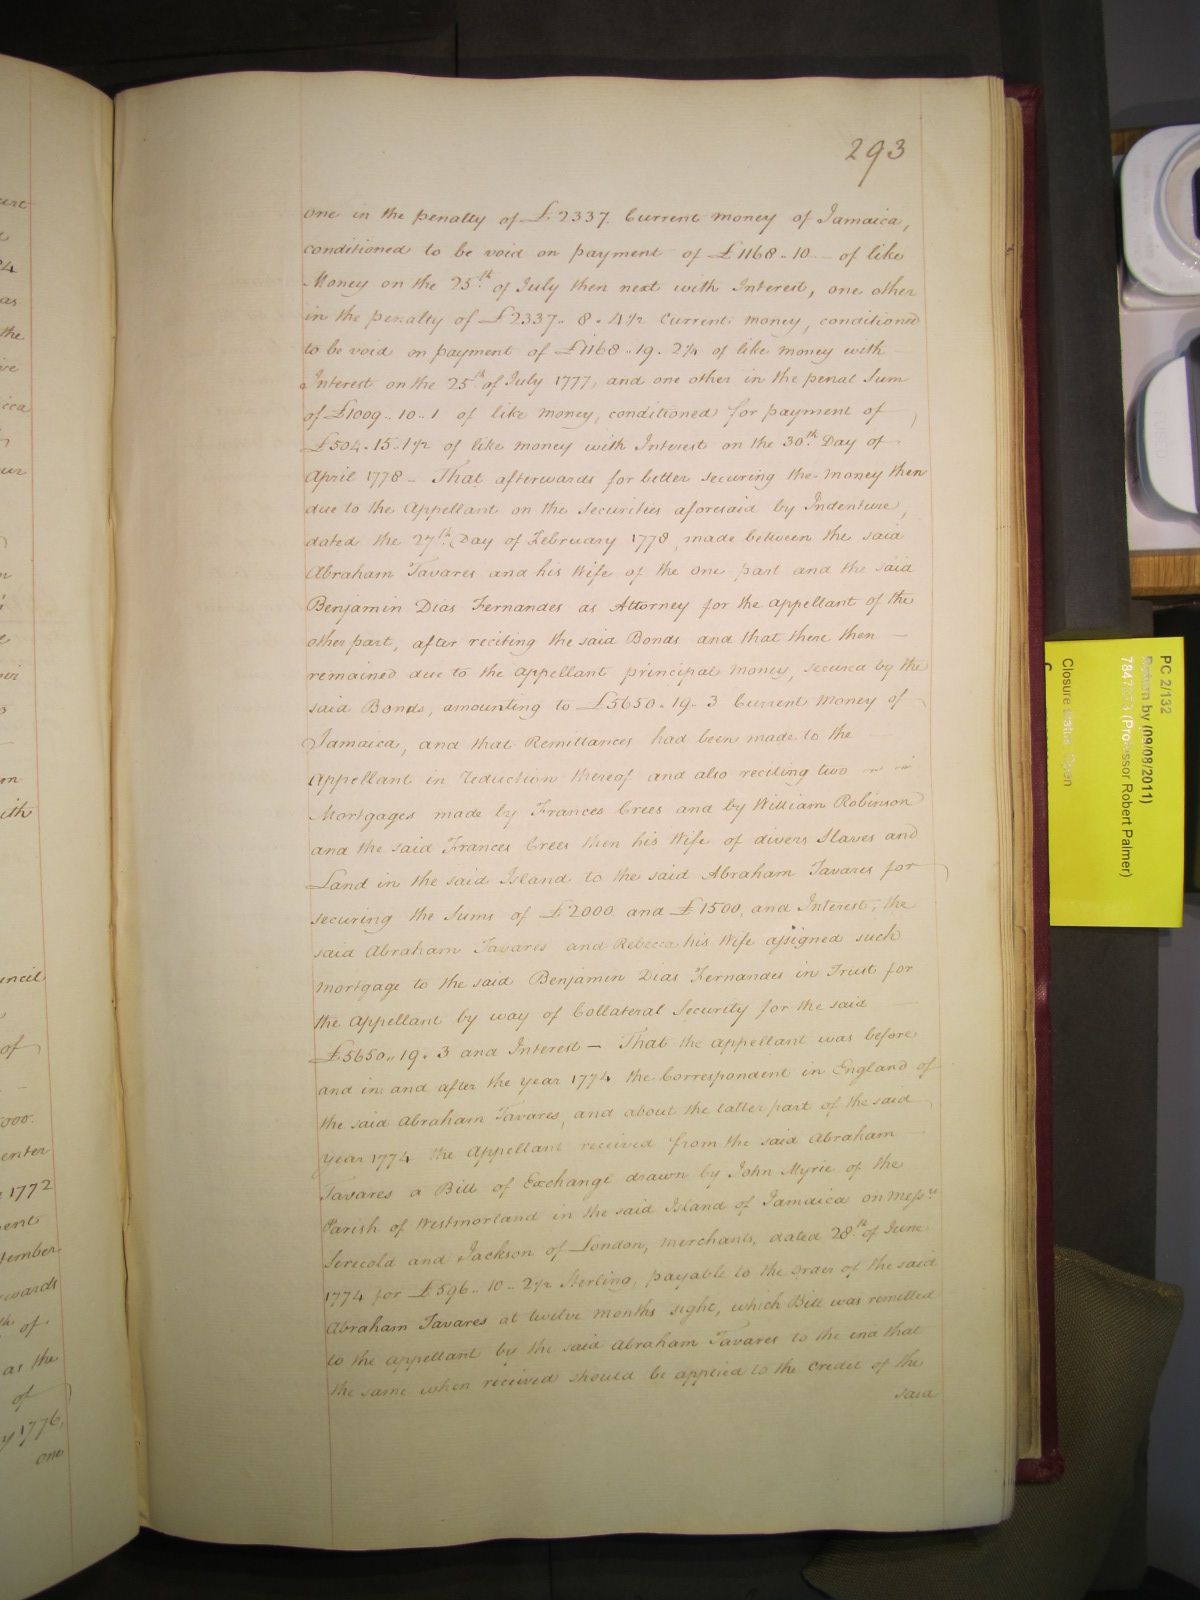 293
one in the penalty of £2337. Current money of Jamaica,
conditioned to be void on payment of £1168..10.. – of like
Money on the 25th. of July then next with Interest, one other
in the penalty of £2337.. 8 . 4½ Current money, conditioned
to be void on payment of £1168..19. 2¼ of like money with
Interest on the 25th of July 1777, and one other in the penal Sum
of £1009..10..1 of like money, conditioned for payment of
£504.15.1½ of like money with Interest on the 30th. Day of
April 1778 – That afterwards for better securing the money then
due to the Appellant on the Securities aforesaid by Indenture,
dated the 27th. Day of February 1778, made between the said
Abraham Tavares and his Wife of the one part and the said
Benjamin Dias Fernandes as Attorney for the appellant of the
other part, after reciting the said Bonds and that there then –
remained due to the appellant principal money, secured by the
said Bonds, amounting to £5650.19.. 3 Current Money of
Jamaica, and that Remittances had been made to the
Appellant in reduction thereof and also reciting two
Mortgages made by Frances Crees and by William Robinson
and the said Frances Crees then his Wife of divers Slaves and
Land in the said Island to the said Abraham Tavares for
securing the Sums of £2000. and £1500, and Interest, the
said Abraham Tavares and Rebecca his Wife assigned such
mortgage to the said Benjamin Dias Fernandes in Trust for
the appellant by way of Collateral Security for the said
£5650..19. 3 and Interest – That the appellant was before
and in and after the year 1774 the Correspondent in England of
the said Abraham Tavares, and about the latter part of the said
year 1774 the Appellant received from the said Abraham
Tavares a Bill of Exchange drawn by John Myrie of the
Parish of Westmorland in the said Island of Jamaica on Messrs
Serecold and Jackson of London, Merchants, dated 28th. of June
1774 for £596..10..2½ Sterling, payable to the order of the said
Abraham Tavares at twelve months sight, which Bill was remitted
to the appellant by the said Abraham Tavares to the end that
the same when received should be applied to the Credit of the
said
PC 2/132
Return by (09/08/2011)
(Professor Robert Palmer)
Closure status: Open
24
as
the
ith
uncil
of
enter
1772
tember
wards
of
as the
of
y 1776,
one